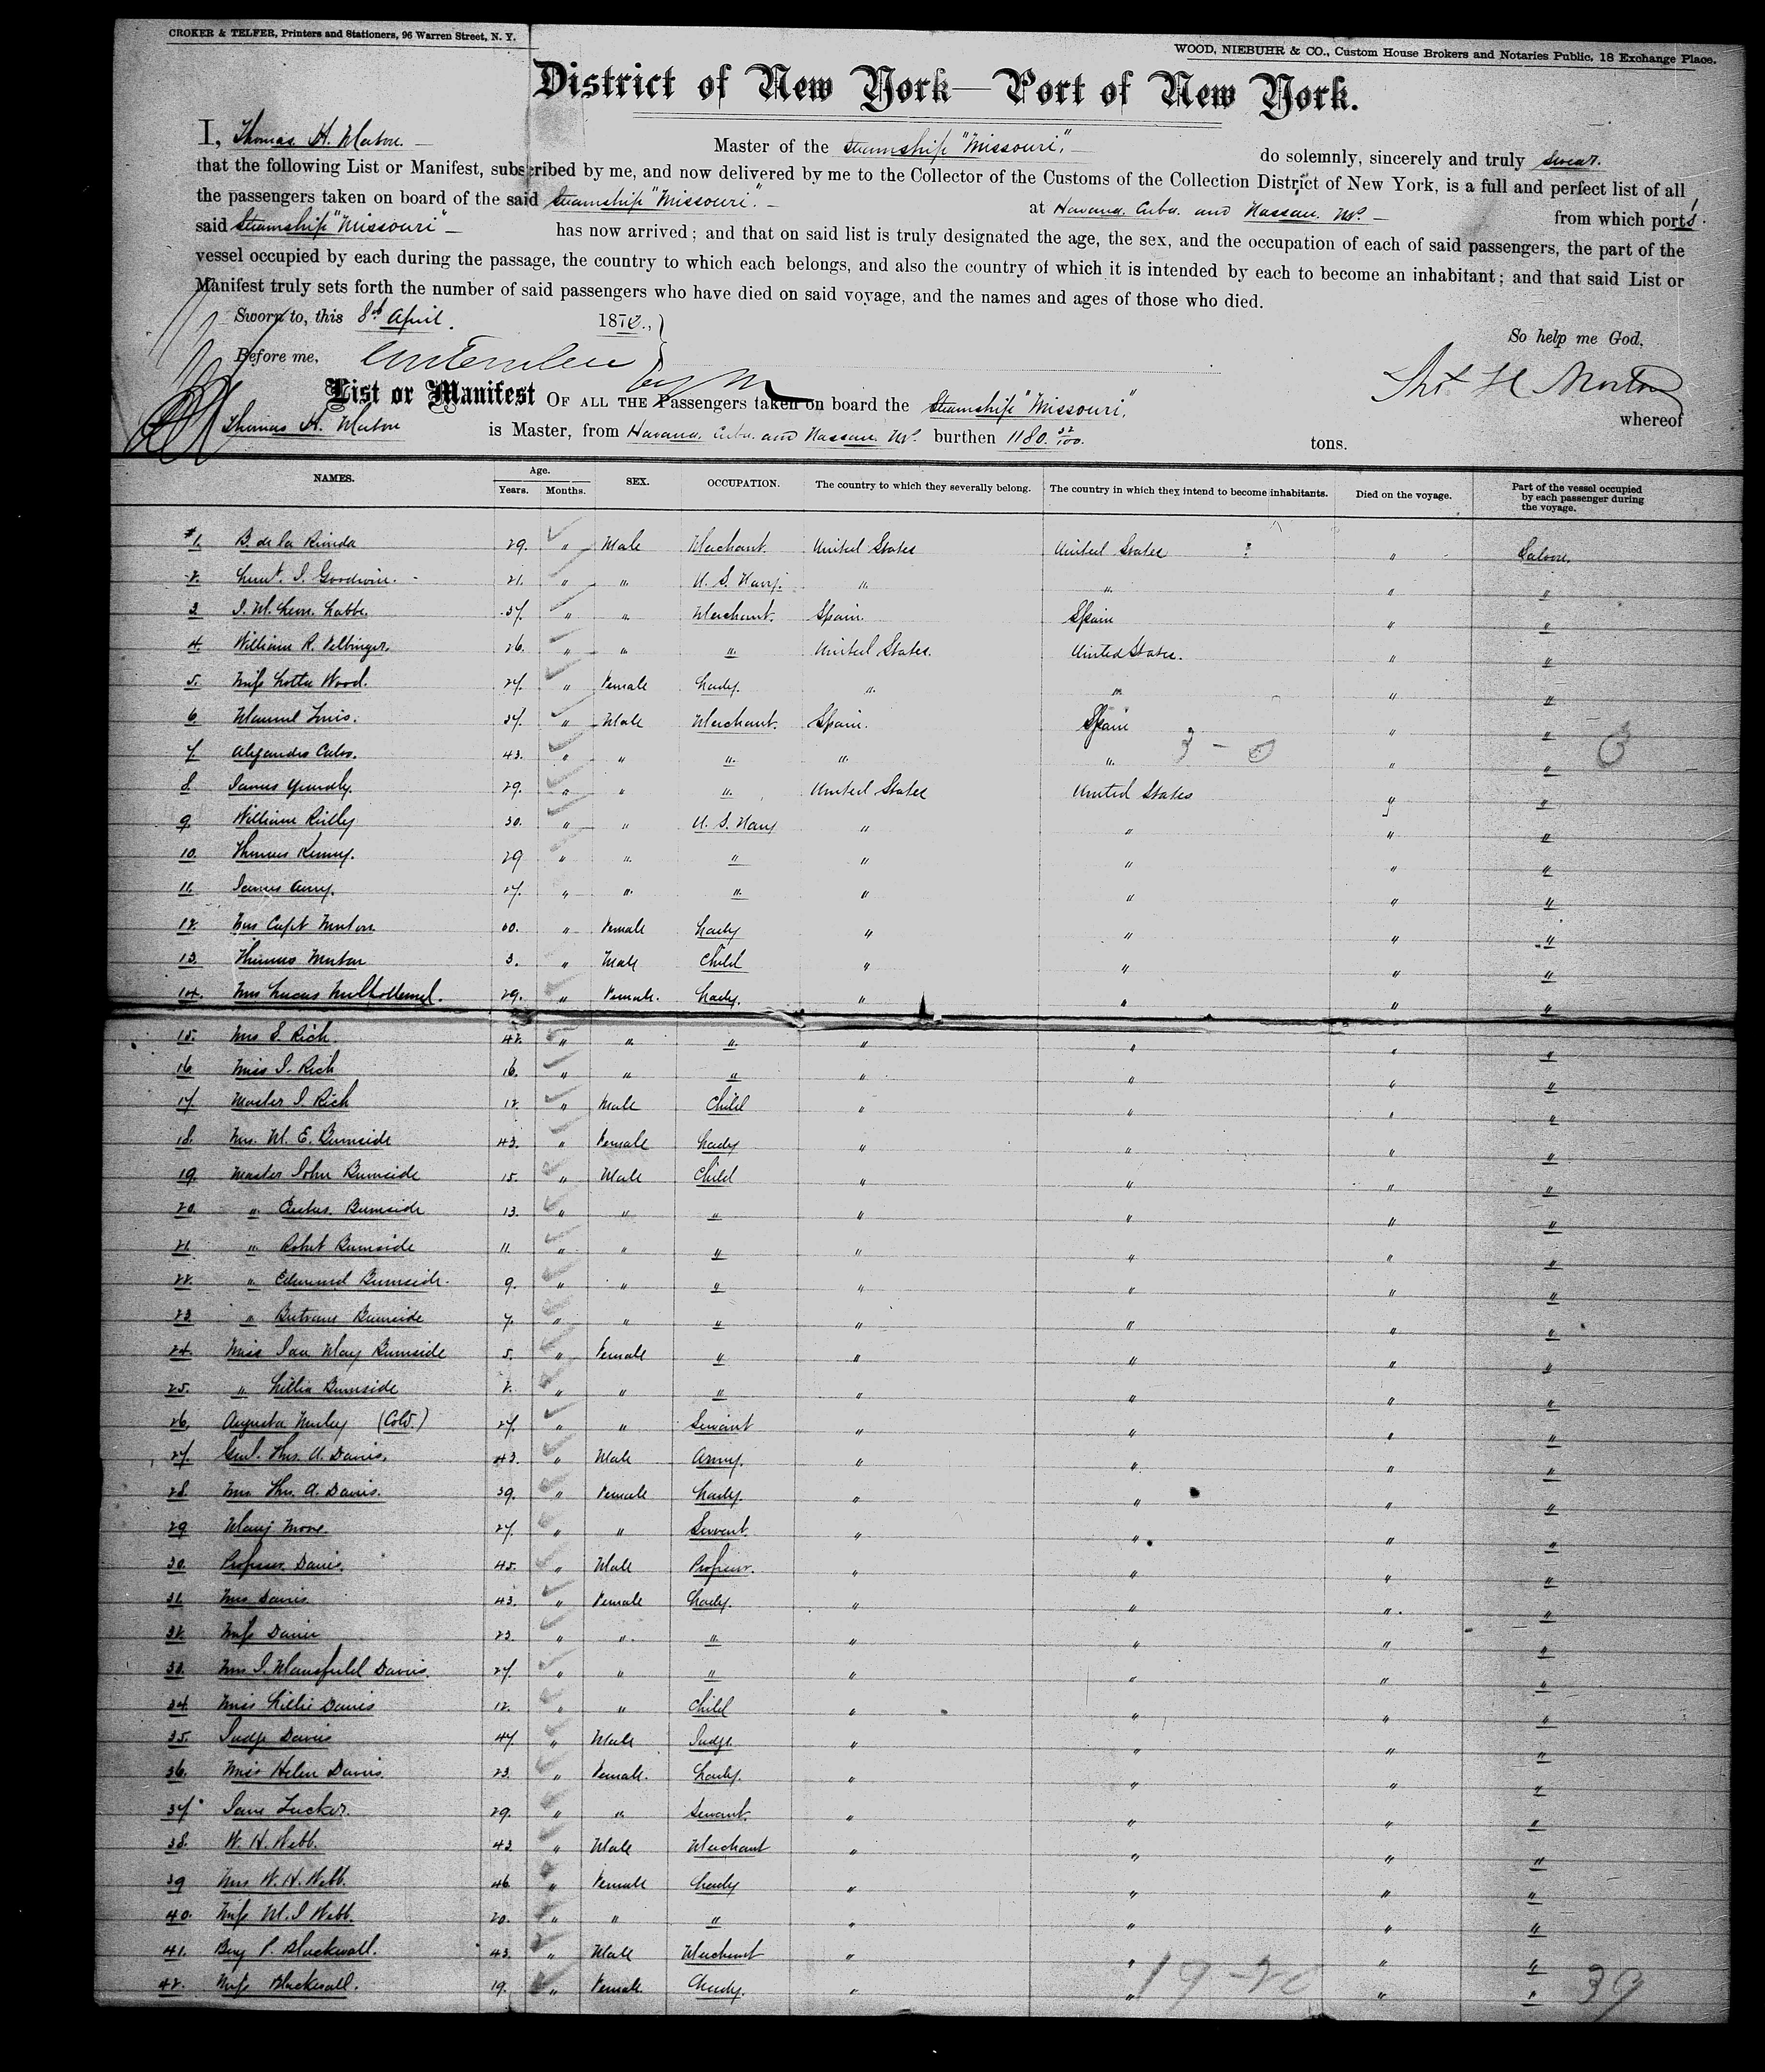 CROKER & TELFER, Printers and Stationers, 96 Warren Street, N. Y.
WOOD, NIEBUHR & CO., Custom House Brokers and Notaries Public, 18 Exchange Place.
District of New York—Port of New York.
I, Thomas H. Morton. Master of the Steamship "Missouri," do solemnly, sincerely and truly swear.
that the following List or Manifest, subscribed by me, and now delivered by me to the Collector of the Customs of the Collection District of New York, is a full and perfect list of all
the passengers taken on board of the said Steamship "Missouri." at Havana. Cuba. and Nassau. NP. from which ports
said Steamship "Missouri" has now arrived; and that on said list is truly designated the age, the sex, and the occupation of each of said passengers, the part of the
vessel occupied by each during the passage, the country to which each belongs, and also the country of which it is intended by each to become an inhabitant; and that said List or
Manifest truly sets forth the number of said passengers who have died on said voyage, and the names and ages of those who died.
Sworn to, this 8th April. 1872.,
So help me God,
Before me,
Tho H Morton
List or Manifest OF ALL THE Passengers taken on board the Steamship "Missouri", whereof
Thomas H. Morton is Master, from Havana. Cuba. and Nassau. NP. burthen 1180. 32/100. tons.
NAMES. Age. Years. Months. SEX. OCCUPATION. The country to which they severally belong. The country in which they intend to become inhabitants. Died on the voyage. Part of the vessel occupied by each passenger during the voyage.
#1. B. de la 29. " Male Merchant. United States United States " Saloon.
2. Lieut. I. Goodwin. 21. " " U. S. Navy. " " " "
3. I. M. Labbe. 37. " " Merchant. Spain. Spain " "
4. William R. 26. " " " United States. United States. " "
5. Miss Lotta Wood. 27. " Female Lady. " " " "
6. Manuel 37. " Male Merchant. Spain. Spain " "
7. Alejandro Calvo. 43. " " " " " " "
3 - 0
8. James 29. " " " United States United States " "
9. William Reilly 30. " " U. S. Navy " " " "
10. Thomas Kenny. 29 " " " " " " "
11. James 27. " " " " " " "
12. Mrs Capt Morton 30. " Female Lady " " " "
13. Thomas Morton 3. " Male Child " " " "
14. Mrs Lucas Mulholland. 29. " Female. Lady. " " " "
15. Mrs S. Rich. 42. " " " " " " "
16 Miss I. Rich 16. " " " " " " "
17. Master I. Rich 12. " Male Child " " " "
18. Mrs. M. E. Burnside 43. " Female Lady " " " "
19. Master John Burnside 15. " Male Child " " " "
20. " Burnside 13. " " " " " " "
21. " Robert Burnside 11. " " " " " " "
22. " Edmund Burnside. 9. " " " " " " "
23 " Bertram Burnside 7. " " " " " " "
24. Miss Ida May Burnside 5. " Female " " " " "
25. " Lillia Burnside 2. " " " " " " "
26. Augusta (Cold.) 27. " " Servant " " " "
27. Genl. Thos. A. Davis. 43. " Male Army. " " " "
28. Mrs Thos. A. Davis. 39. " Female Lady. " " " "
29 Mary Moore. 27. " " Servant. " " " "
30. Professor Davis. 45. " Male Professor. " " " "
31. Mrs Davis. 43. " Female Lady. " " " "
32. Miss Davis 23. " " " " " " "
33. Mrs I. Mansfield Davis. 27. " " " " " " "
34. Miss Lillie Davis 12. " " Child " " " "
35. Judge Davis 47. " Male Judge. " " " "
36. Miss Helen Davis. 23. " Female. Lady. " " " "
37. Jane Tucker. 29. " " Servant. " " " "
38. W. H. Webb. 43. " Male Merchant " " " "
39 Mrs W. H. Webb. 46. " Female Lady " " " "
40. Miss M. I Webb. 20. " " " " " " "
41. Benj P. Blackwall. 43. " Male Merchant " " " "
42. Miss Blackwall. 19. " Female. Lady. " " " "
19-20
39